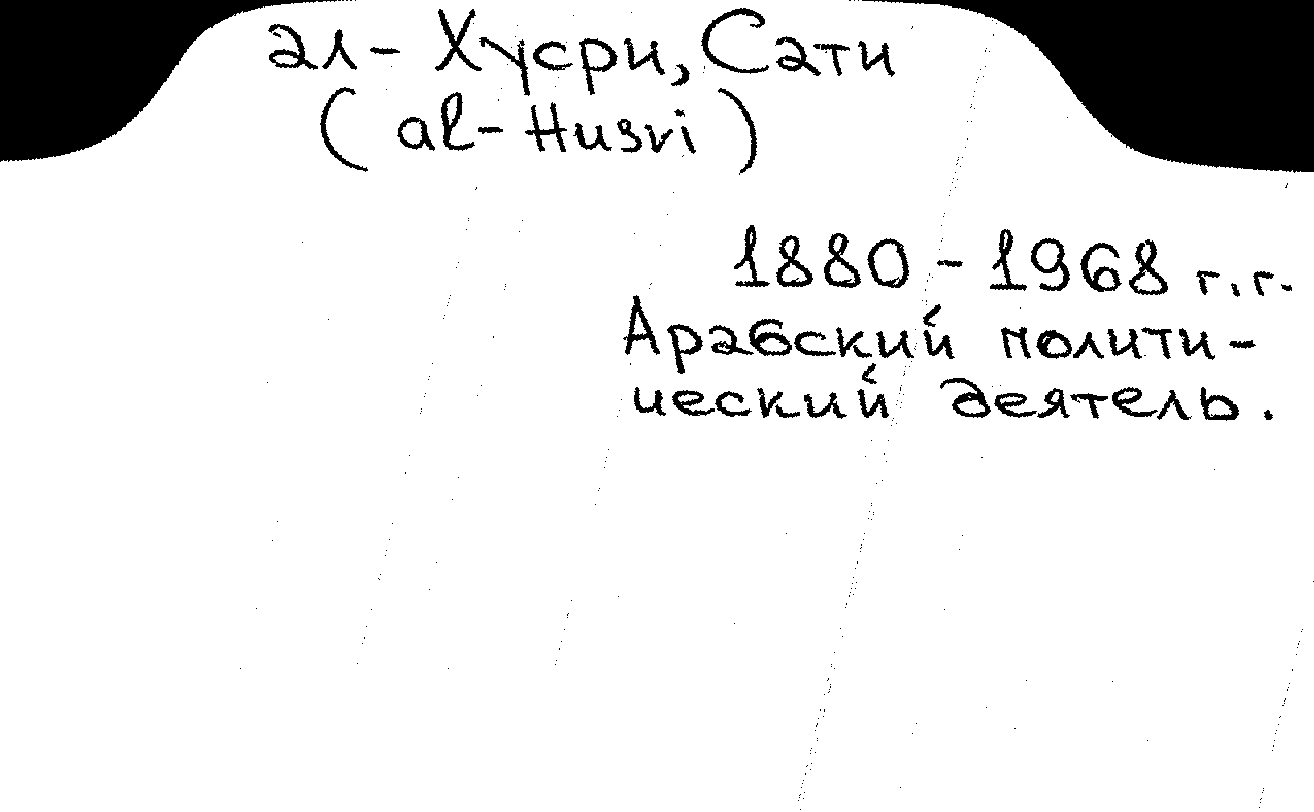 ал- Хусри, Сати
( al-Husri )
1880 - 1968 г.г.
Арабский полити-
ческий деятель.